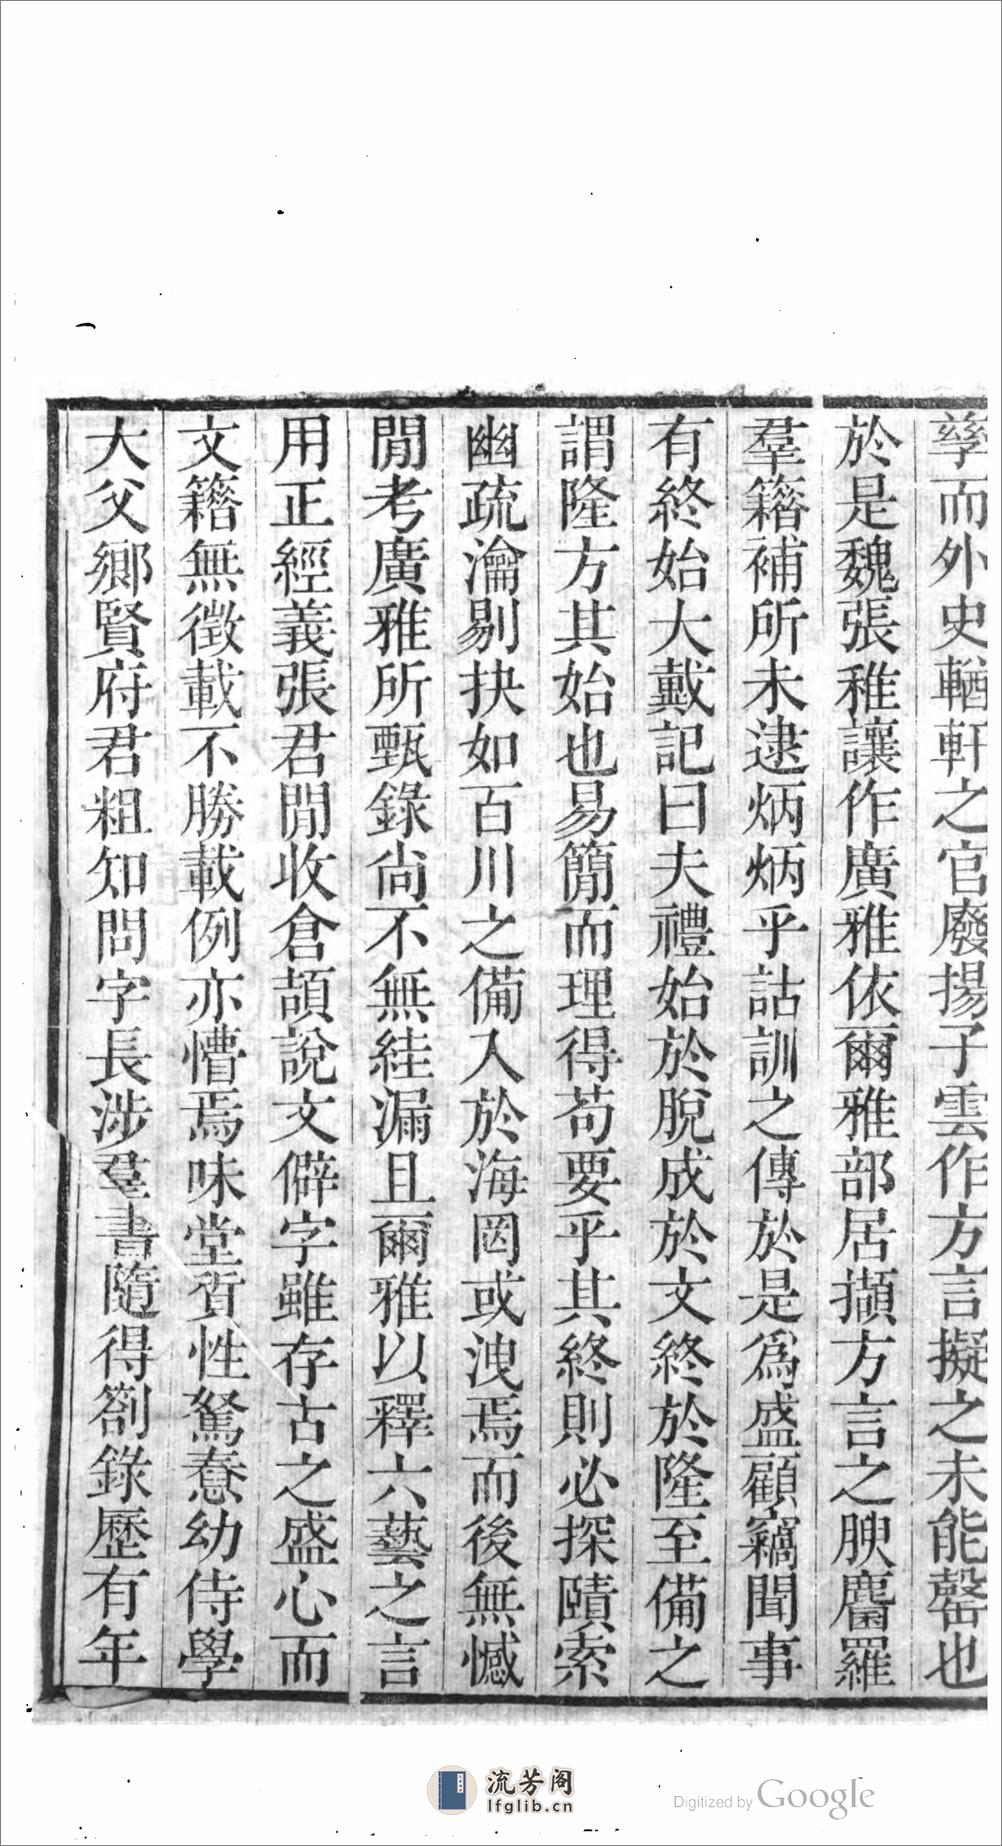 孳而外史輶軒之官廢揚子雲作方言擬之未能罄也
於是魏張稚讓作廣雅依爾雅部居擷方言之腴麕羅
羣籍補所未逮炳炳乎詁訓之傳於是爲盛顧竊聞事
有終始大戴記曰夫禮始於脫成於文終於隆至備之
謂隆方其始也易簡而理得苟要乎其終則必探賾索
幽疏瀹剔抉如百川之備入於海罔或洩焉而後無憾
閒考廣雅所甄錄尙不無絓漏且爾雅以釋六藝之言
用正經義張君閒收倉頡說文僻字雖存古之盛心而
文籍無徵載不勝載例亦懵焉味堂質性駑惷幼侍學
大父鄉賢府君粗知問字長涉羣書隨得劄錄歷有年
流芳阁
lfglib.cn
Digitized by Google